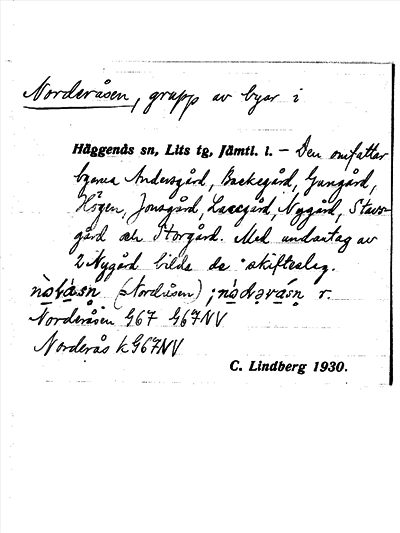 Norderåsen, grupp av byar i
Häggenås sn, Lits tg, Jämtl. l. — Den omfattar
byarna Andersgård, Backegård, Gungård,
Högen, Jonsgård, Lassgård, Nygård, Stavs-
gård och Storgård. Med undantag av
2 Nygård bilda de skifteslag.
(Nordåsen) ; r.
Norderåsen G67 G67NV
Norderås k G67NV
C. Lindberg 1930.